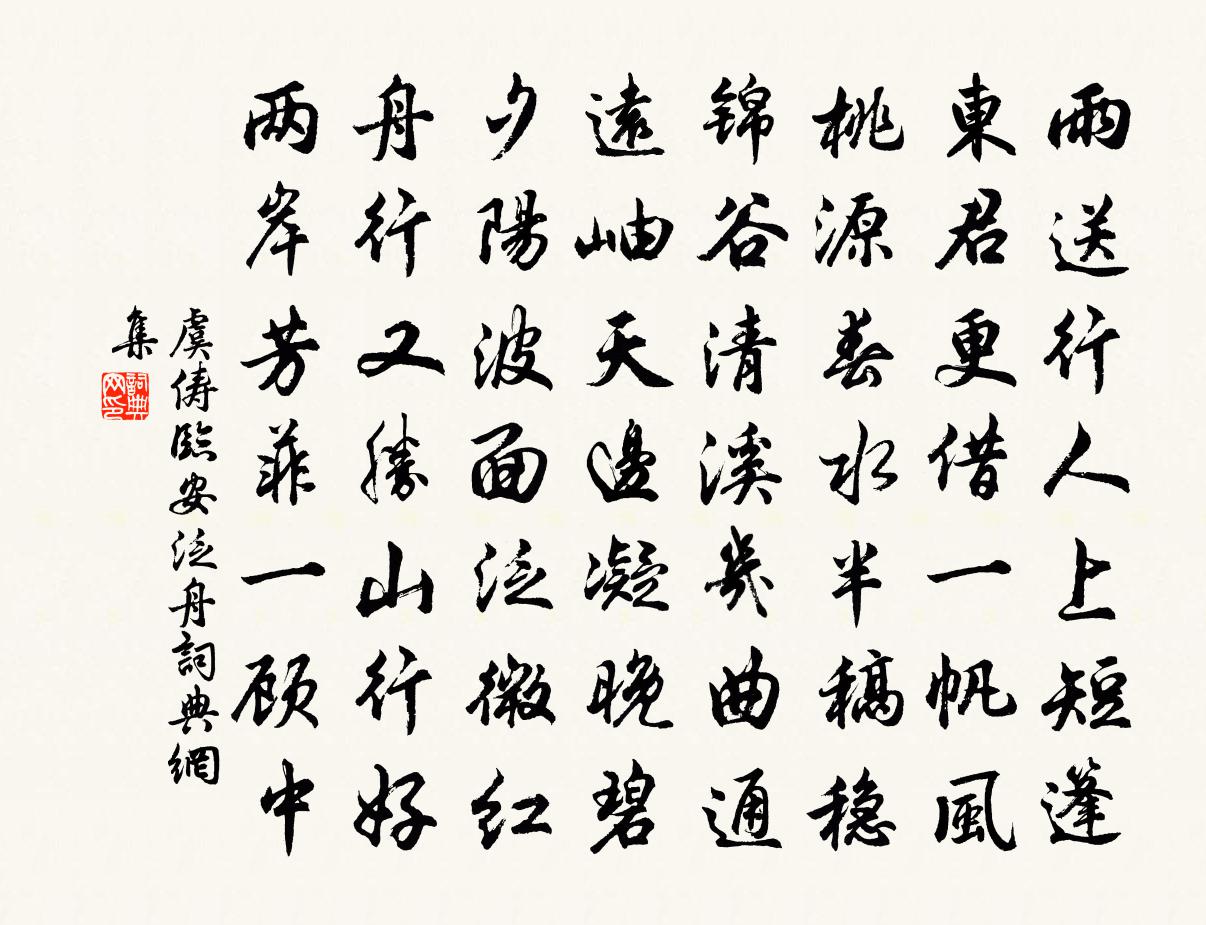 雨送行人上短蓬
東君更借一帆風
桃源春水半稿穩
锦谷清溪幾曲通
遠岫天邊凝晚碧
夕陽波面泛微红
舟行又勝山行好
两岸芳菲一顾中
虞儔臨安泛舟詞典網
集
詞典网印